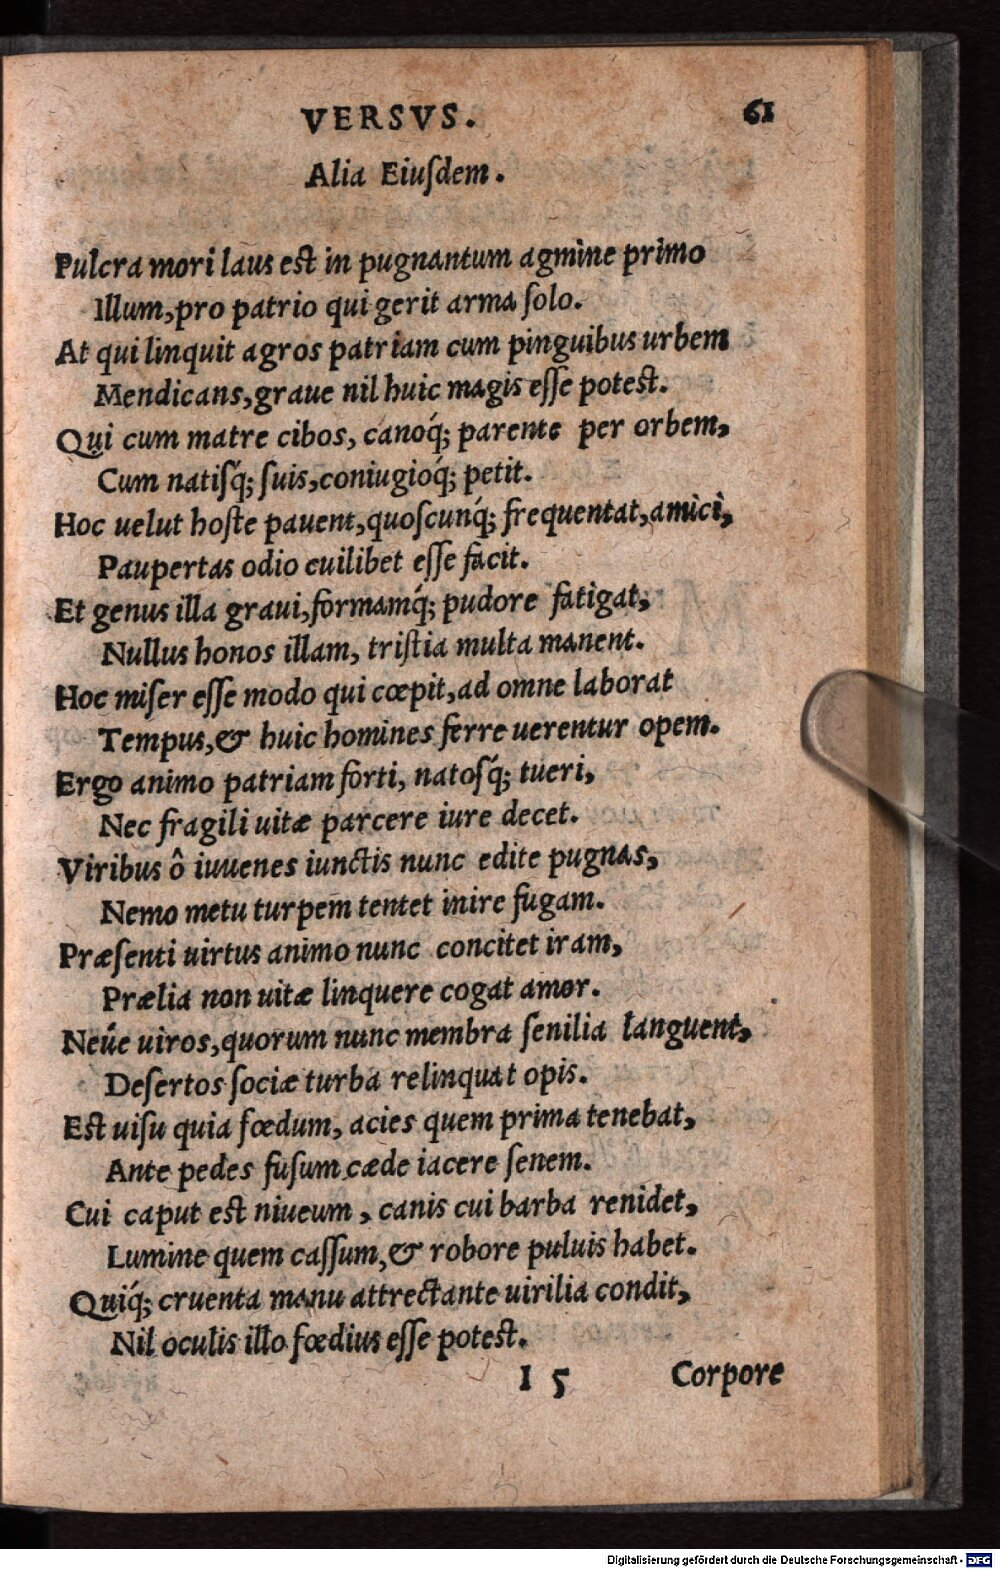 VERSVS. 61
Alia Eiuſdem.
Pulcra mori laus est in pugnantum agmine primo
Illum, pro patrio qui gerit arma ſolo.
At qui linquit agros patriam cum pinguibus urbem
Mendicans, graue nil huic magis eſſe potest.
Qui cum matre cibos, canoq́; parente per orbem,
Cum natiſq́; ſuis, coniugioq́; petit.
Hoc uelut hoſte pauent, quoſcunq́; frequentat, amici,
Paupertas odio cuilibet eſſe facit.
Et genus illa graui, formamq́; pudore fatigat,
Nullus honos illam, triſtia multa manent.
Hoc miſer eſſe modo qui cœpit, ad omne laborat
Tempus, & huic homines ferre uerentur opem.
Ergo animo patriam forti, natoſq́; tueri,
Nec fragili uitæ parcere iure decet.
Viribus ô iuuenes iunctis nunc edite pugnas,
Nemo metu turpem tentet inire fugam.
Præſenti uirtus animo nunc concitet iram,
Prælia non uitæ linquere cogat amor.
Neúe uiros, quorum nunc membra ſenilia languent,
Deſertos ſociæ turba relinquat opis.
Est uiſu quia fœdum, acies quem prima tenebat,
Ante pedes fuſum cæde iacere ſenem.
Cui caput est niueum, canis cui barba renidet,
Lumine quem caſſum, & robore puluis habet.
Quiq́; cruenta manu attrectante uirilia condit,
Nil oculis illo fœdius eſſe potest.
I 5 Corpore
Digitalisierung gefördert durch die Deutsche Forschungsgemeinschaft - DFG